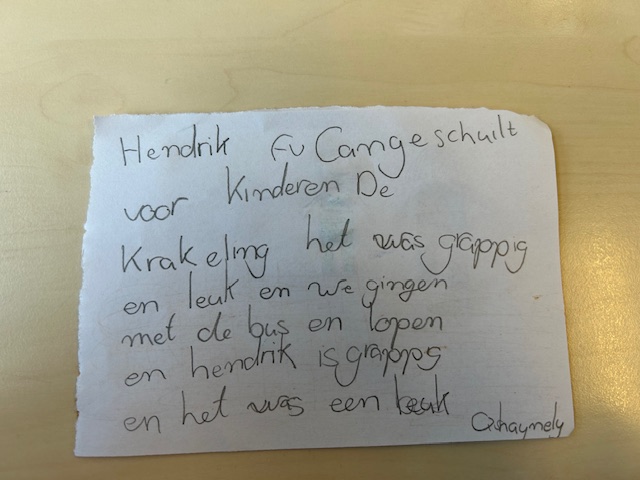 Hendrik Fv Cangeschuilt
voor Kinderen De
Krakeling het was grappig
en leuk en we gingen
met de bus en lopen
en hendrik is grappg
en het was een leuk
Qhaynely